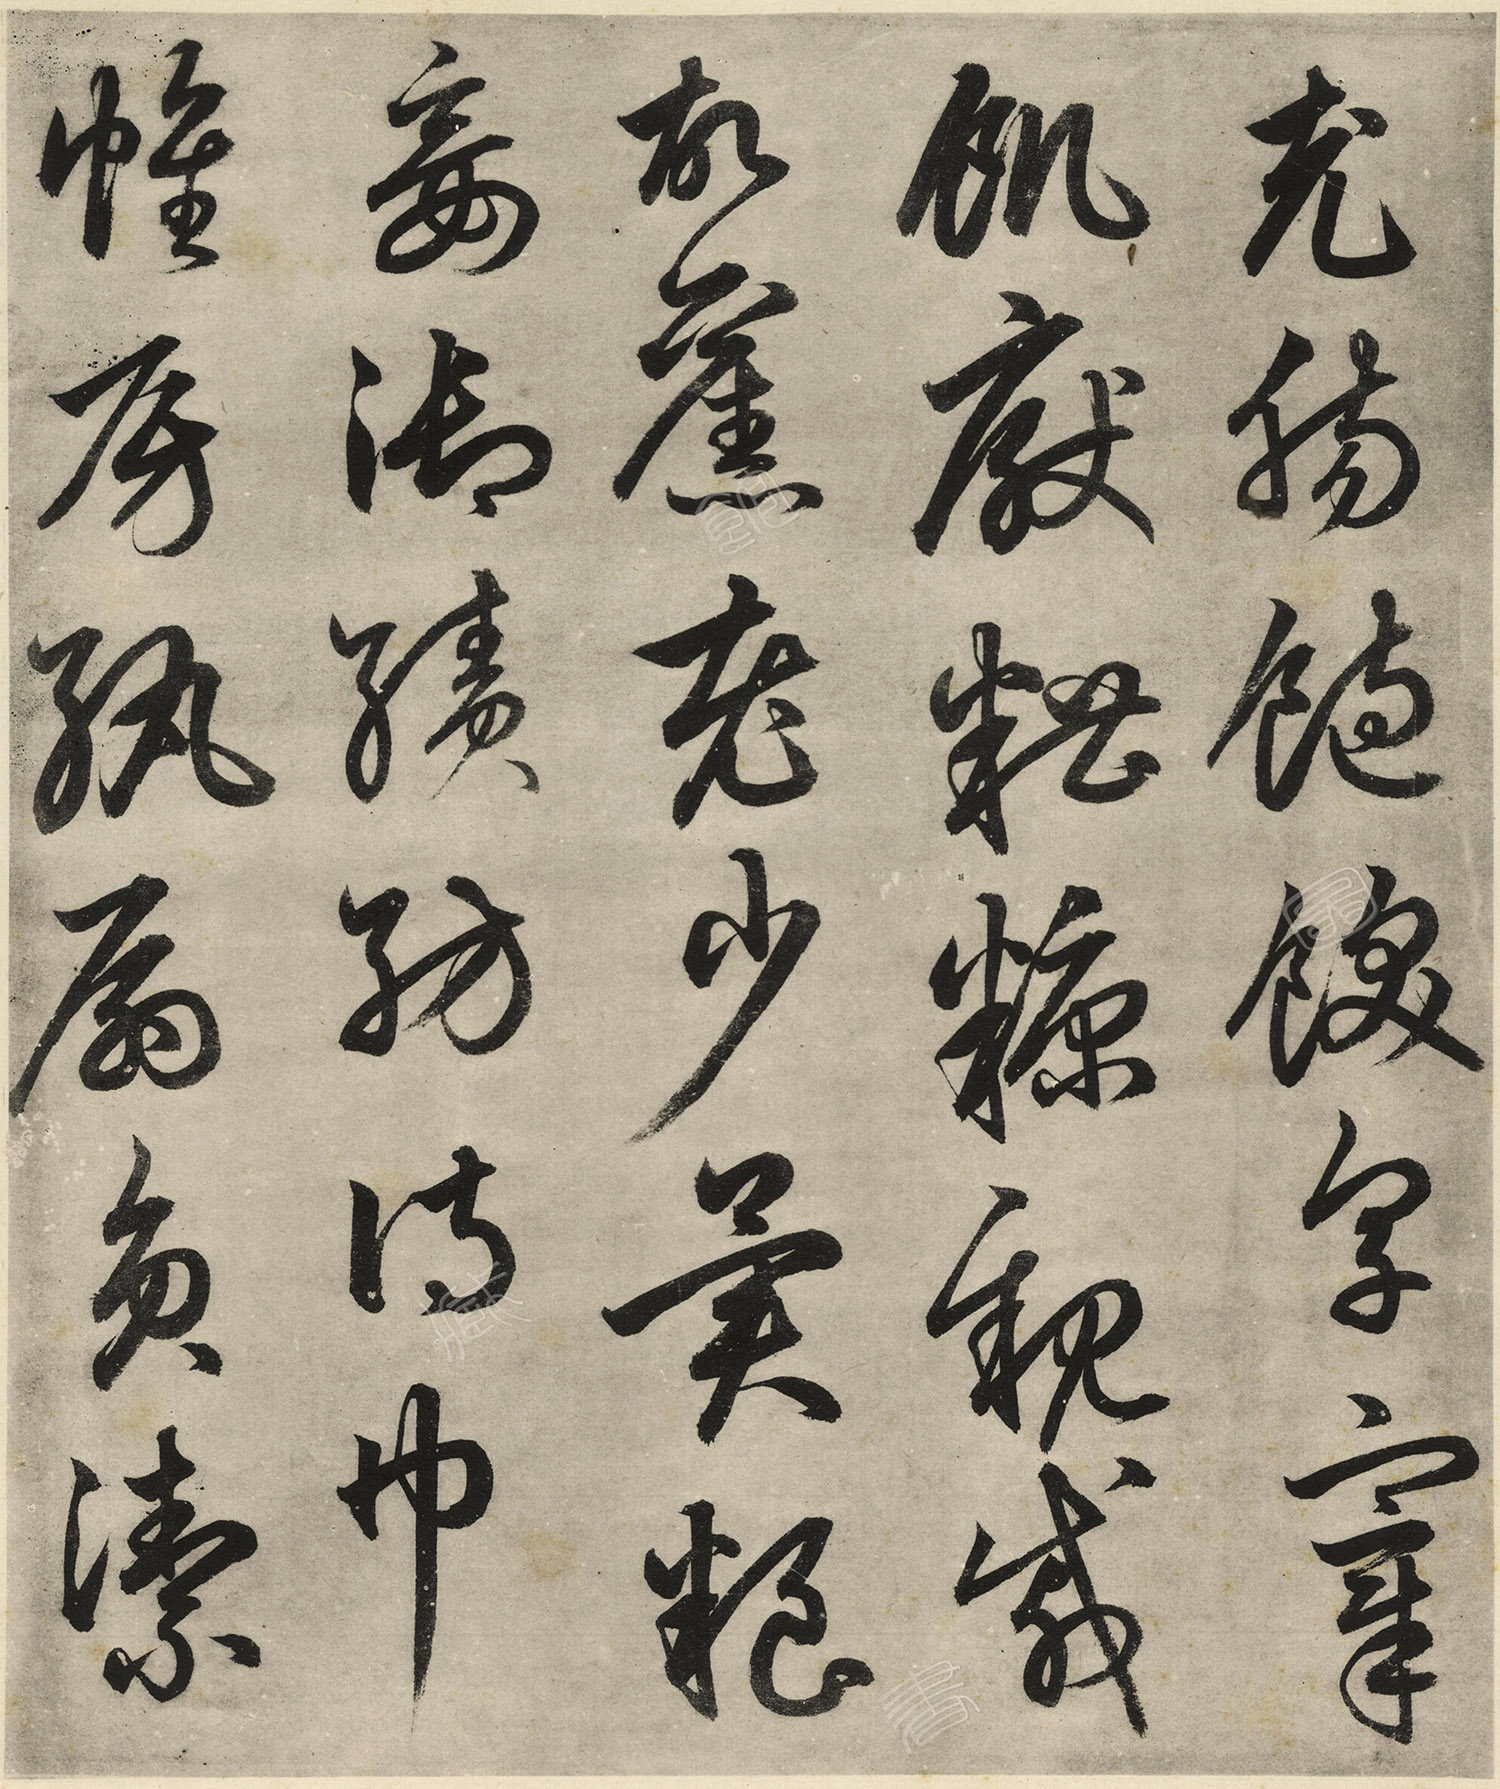 充腸飽飫享宰
飢厭糟糠親戚
故舊老少異粮
妾御績紡侍巾
帷房紈扇員潔